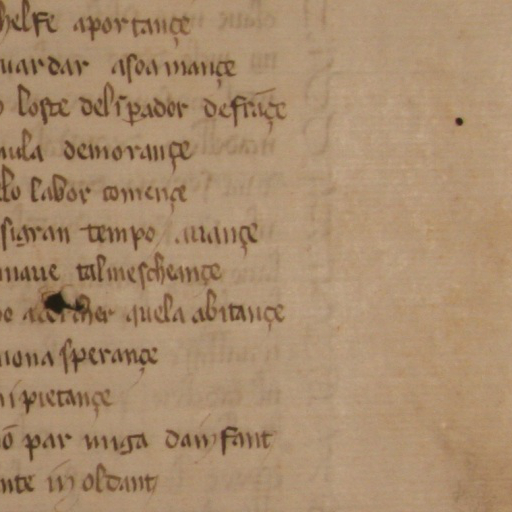 helfe aportançe
uardar asoa mançe
loste deliꝑador defrāçe
nula demorançe
llo labor començe
sigran tempo auançe
naue talmescheançe
acercher quela abitançe
uona sperançe
i pietançe
nō par miga dainfant
nte in oldant